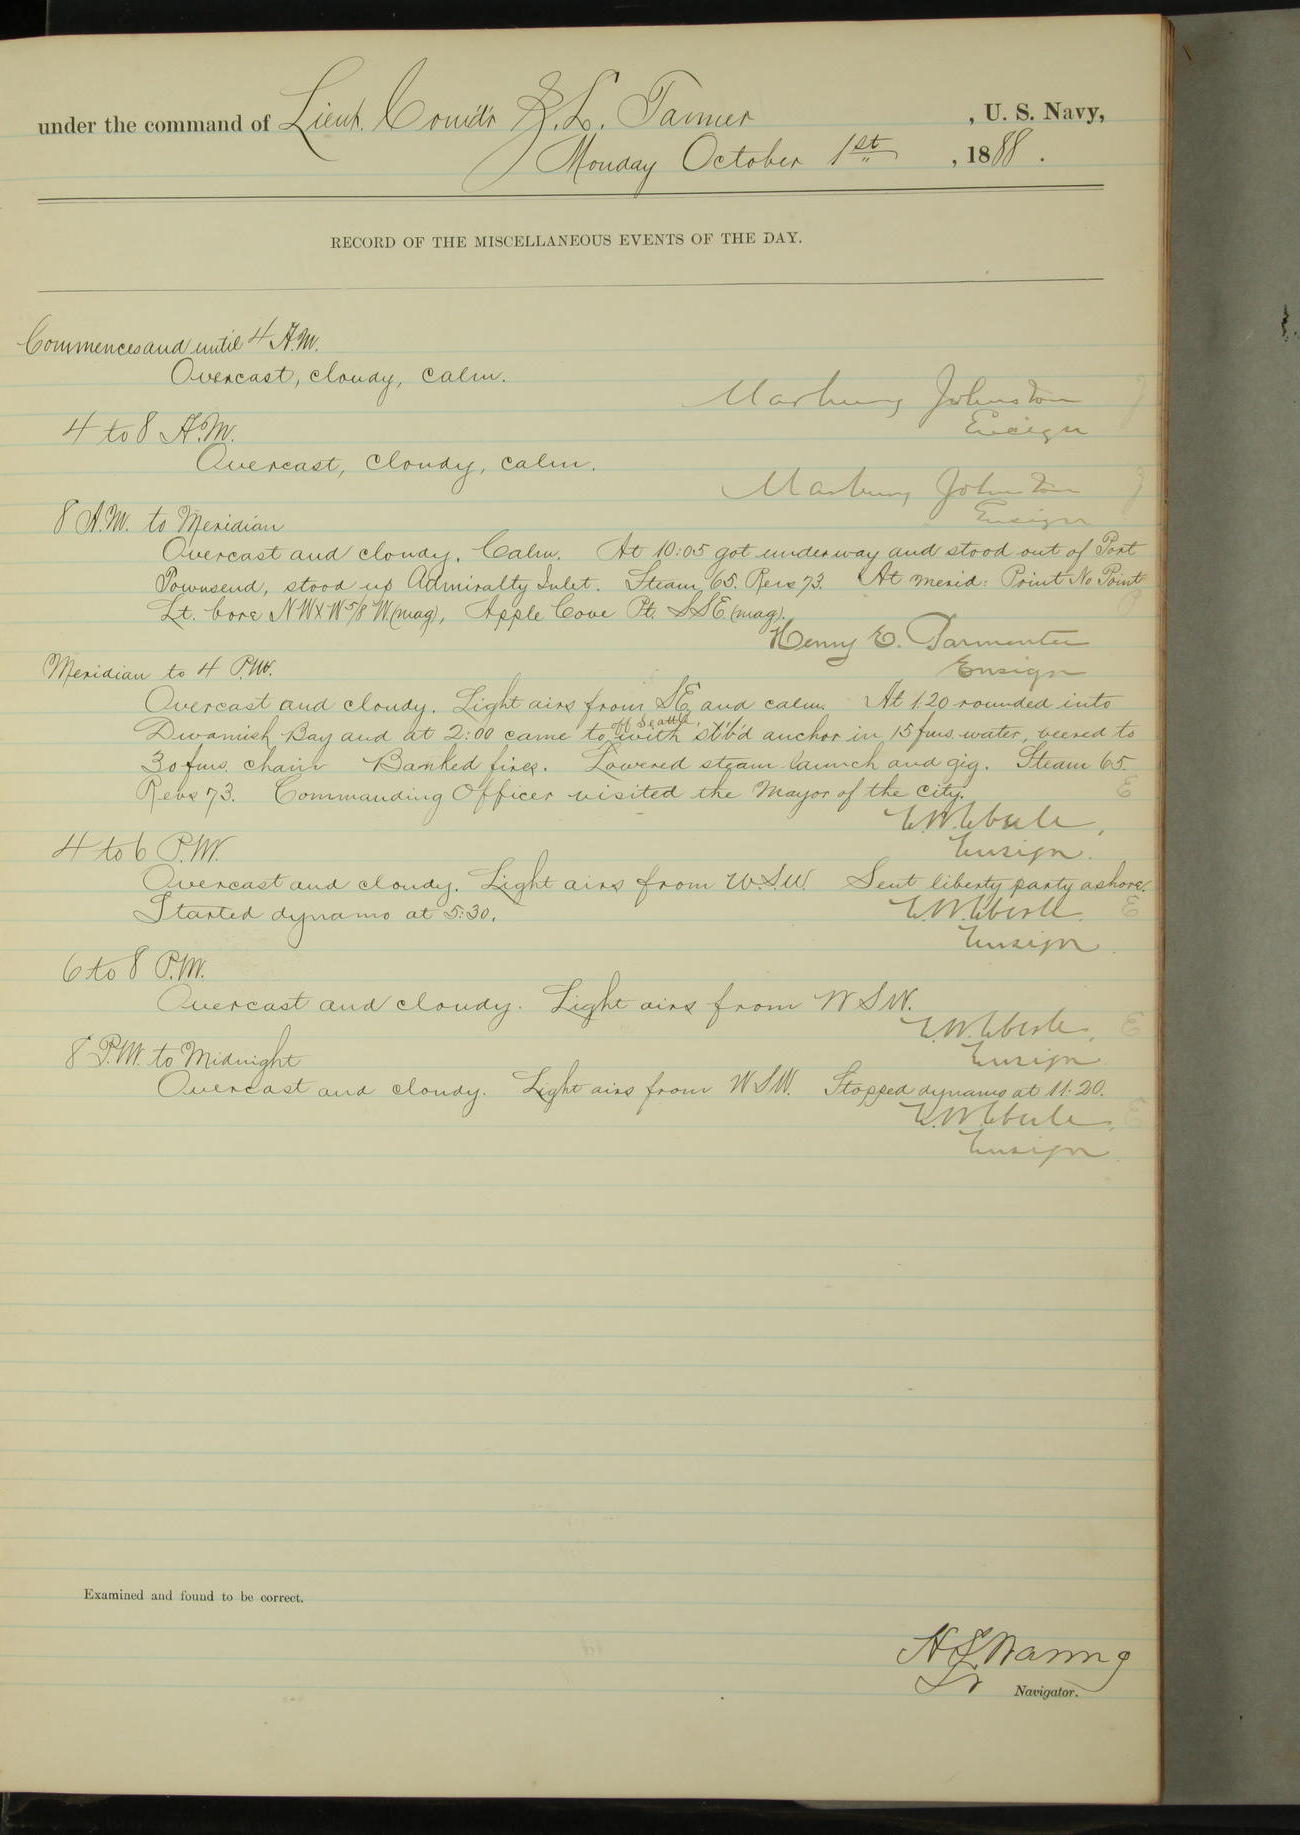 under the command of Lieut. Comd'r Z. L. Tanner , U. S. Navy,
Monday October 1st , 1888 .
RECORD OF THE MISCELLANEOUS EVENTS OF THE DAY.
Commences and until 4 A.M.
Overcast, cloudy, calm.
Marbury Johnston
Ensign
4 to 8 A.M.
Overcast, cloudy, calm.
Marbury Johnston
Ensign
8 A.M. to Meridian
Overcast and cloudy. Calm. At 10:05 got underway and stood out of Port
Townsend, stood up Admiralty Inlet. Steam 65. Revs 73. At merid: Point No Point
Lt. bore NWxW 5/8 W. (mag), Apple Cove Pt. SSE (mag).
Henry E. Parmenter
Ensign
Meridian to 4 P.M.
Overcast and cloudy. Light airs from SE and calm. At 1.20 rounded into
Dwamish Bay and at 2:00 came to off Seattle, with stb'd anchor in 15 fms. water, veered to
30 fms. chain Banked fires. Lowered steam launch and gig. Steam 65
Revs 73. Commanding Officer visited the Mayor of the city.
E.W. Eberle,
Ensign.
4 to 6 P.M.
Overcast and cloudy. Light airs from W.S.W. Sent liberty party ashore.
Started dynamo at 5:30.
E.W. Eberle.
Ensign.
6 to 8 P.M.
Overcast and cloudy. Light airs from WSW.
E.W. Eberle,
Ensign.
8 P.M. to Midnight
Overcast and cloudy. Light airs from WSW. Stopped dynamo at 11:20.
E.W. Eberle,
Ensign.
Examined and found to be correct.
H S Waring
Lt Navigator.